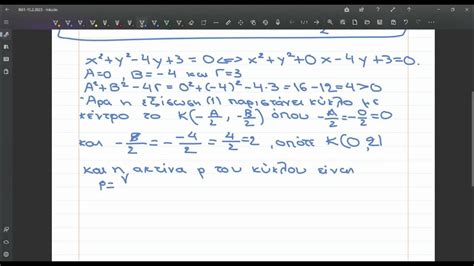 x²+y²-4y+3=0 <=> x²+y²+0x-4y+3=0.
A=0, B=-4 και Γ=3
A²+B²-4Γ=0²+(-4)²-4·3=16-12=4>0
Άρα η εξίσωση (1) παριστάνει κύκλο με
κέντρο το K(-A/2, -B/2) όπου -A/2=-0/2=0
και -B/2=-(-4)/2=4/2=2, οπότε K(0,2)
και η ακτίνα ρ του κύκλου είναι
ρ=√